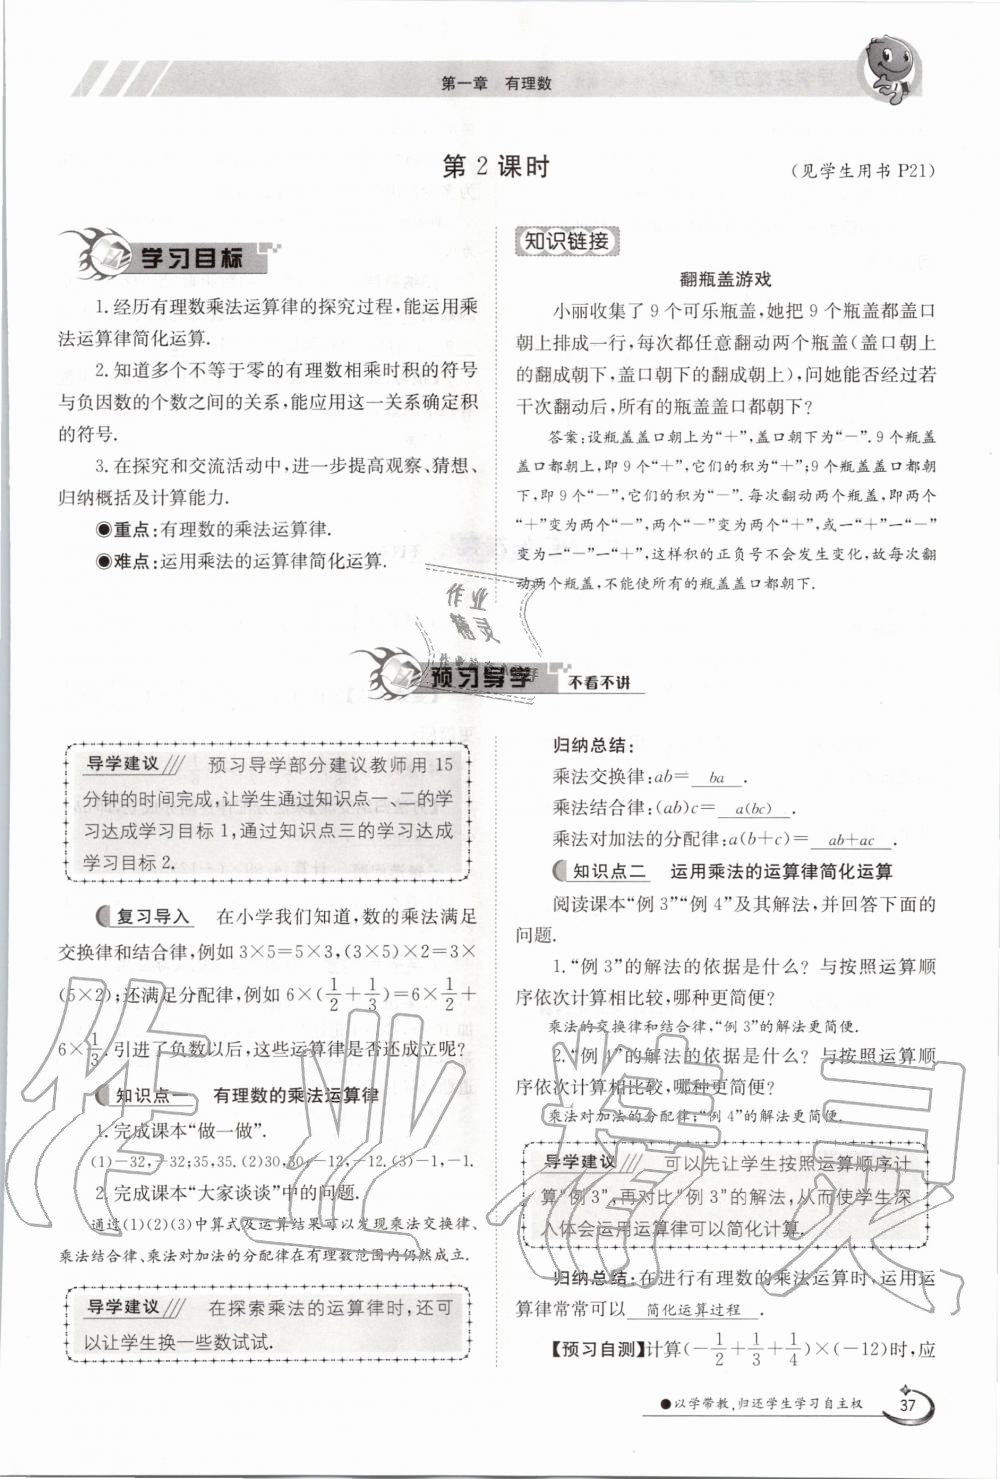 第一章　有理数
第 2 课时
（见学生用书 P21）
学习目标
1. 经历有理数乘法运算律的探究过程，能运用乘
法运算律简化运算.
2. 知道多个不等于零的有理数相乘时积的符号
与负因数的个数之间的关系，能应用这一关系确定积
的符号.
3. 在探究和交流活动中，进一步提高观察、猜想、
归纳概括及计算能力.
◉重点：有理数的乘法运算律.
◉难点：运用乘法的运算律简化运算.
知识链接
翻瓶盖游戏
小丽收集了 9 个可乐瓶盖，她把 9 个瓶盖都盖口
朝上排成一行，每次都任意翻动两个瓶盖（盖口朝上
的翻成朝下，盖口朝下的翻成朝上），问她能否经过若
干次翻动后，所有的瓶盖盖口都朝下？
答案：设瓶盖盖口朝上为“＋”，盖口朝下为“－”. 9 个瓶盖
盖口都朝上，即 9 个“＋”，它们的积为“＋”；9 个瓶盖盖口都朝
下，即 9 个“－”，它们的积为“－”. 每次翻动两个瓶盖，即两个
“＋”变为两个“－”，两个“－”变为两个“＋”，或一“＋”一“－”
变为一“－”一“＋”，这样积的正负号不会发生变化，故每次翻
动两个瓶盖，不能使所有的瓶盖盖口都朝下.
作业
精灵
预习导学　不看不讲
导学建议　预习导学部分建议教师用 15
分钟的时间完成，让学生通过知识点一、二的学
习达成学习目标 1，通过知识点三的学习达成
学习目标 2.
复习导入　在小学我们知道，数的乘法满足
交换律和结合律，例如 3×5＝5×3，(3×5)×2＝3×
(5×2)；还满足分配律，例如 6×(1/2＋1/3)＝6×1/2＋
6×1/3. 引进了负数以后，这些运算律是否还成立呢？
知识点一　有理数的乘法运算律
1. 完成课本“做一做”.
(1)－32，－32；35，35. (2)30，30，－12，－12. (3)－1，－1.
2. 完成课本“大家谈谈”中的问题.
通过(1)(2)(3)中算式及运算结果可以发现乘法交换律、
乘法结合律、乘法对加法的分配律在有理数范围内仍然成立.
导学建议　在探索乘法的运算律时，还可
以让学生换一些数试试.
归纳总结：
乘法交换律：ab＝ ba .
乘法结合律：(ab)c＝ a(bc) .
乘法对加法的分配律：a(b＋c)＝ ab＋ac .
知识点二　运用乘法的运算律简化运算
阅读课本“例 3”“例 4”及其解法，并回答下面的
问题.
1. “例 3”的解法的依据是什么？与按照运算顺
序依次计算相比较，哪种更简便？
乘法的交换律和结合律，“例 3”的解法更简便.
2. “例 4”的解法的依据是什么？与按照运算顺
序依次计算相比较，哪种更简便？
乘法对加法的分配律；“例 4”的解法更简便.
导学建议　可以先让学生按照运算顺序计
算“例 3”，再对比“例 3”的解法，从而使学生深
入体会运用运算律可以简化计算.
归纳总结：在进行有理数的乘法运算时，运用运
算律常常可以 简化运算过程 .
【预习自测】计算(－1/2＋1/3＋1/4)×(－12)时，应
●以学带教，归还学生学习自主权
37
作业精灵